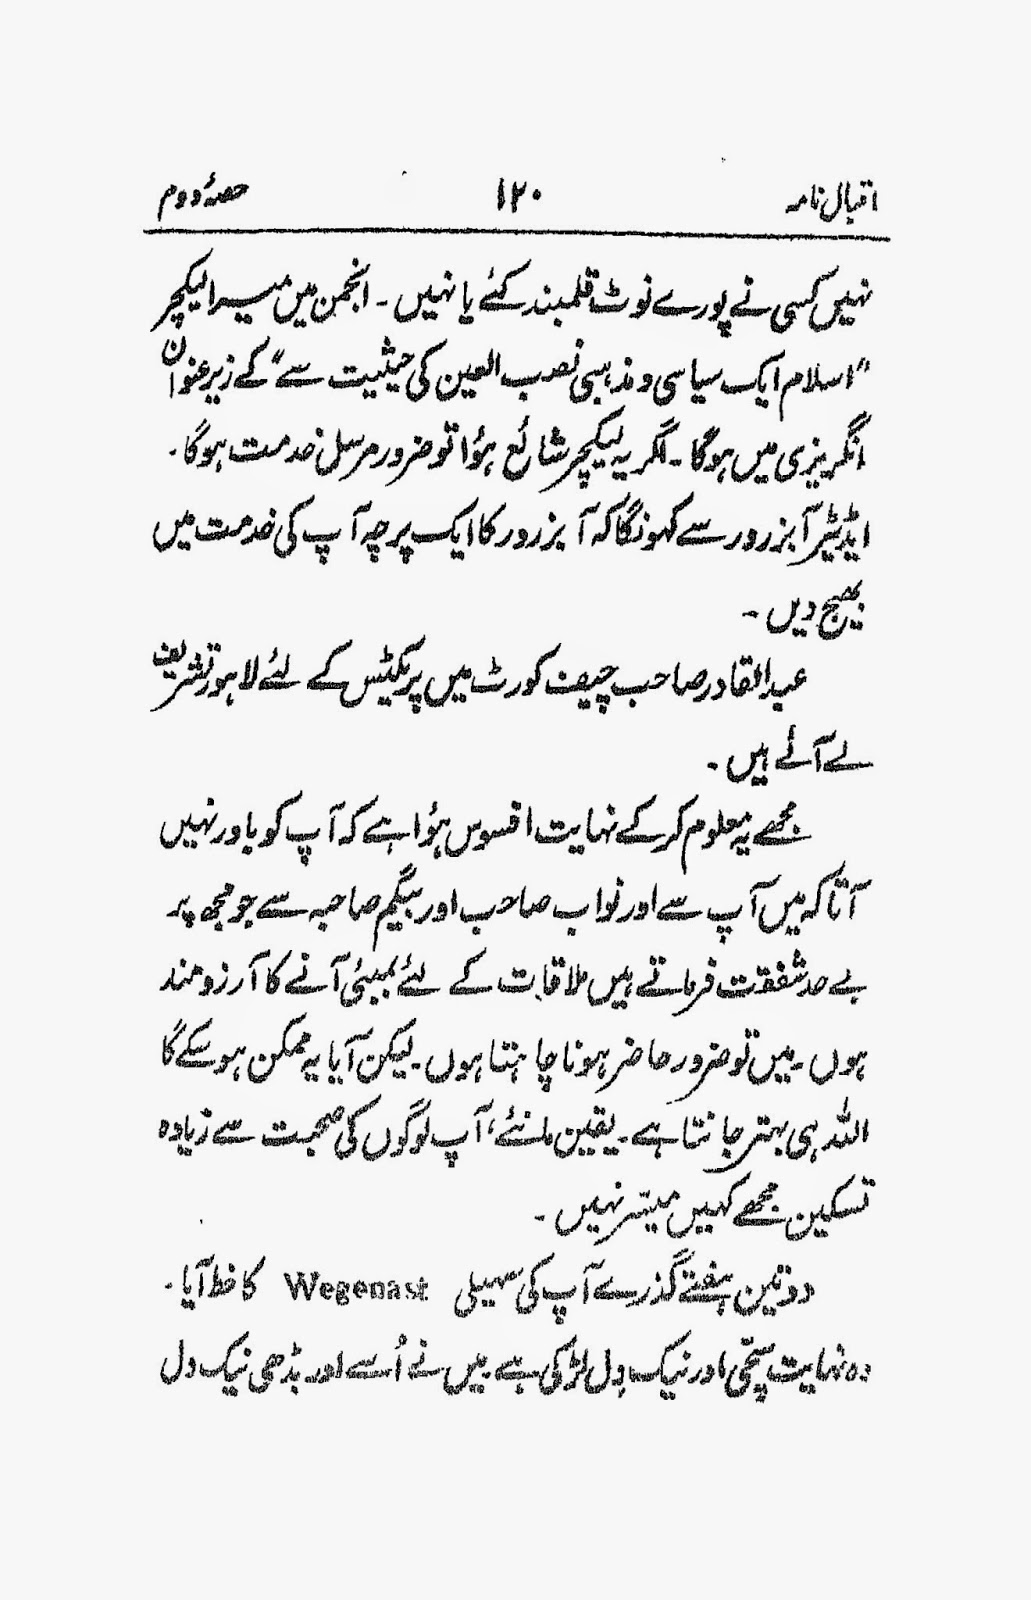 اقبال نامہ ۱۲۰ حصۂ دوم
نہیں کسی نے پورے نوٹ قلمبند کئے یا نہیں ۔ انجمن میں میرا لیکچر
"اسلام ایک سیاسی و مذہبی نصب العین کی حیثیت سے" کے زیر عنوان
انگریزی میں ہوگا ۔ اگر یہ لیکچر شائع ہؤا تو ضرور مرسل خدمت ہوگا ۔
ایڈیٹر آبزرور سے کہونگا کہ آبزرور کا ایک پرچہ آپ کی خدمت میں
بھیج دیں ۔
عبدالقادر صاحب چیف کورٹ میں پریکٹیس کے لئے لاہور تشریف
لے آئے ہیں ۔
مجھے یہ معلوم کر کے نہایت افسوس ہؤا ہے کہ آپ کو باور نہیں
آتا کہ میں آپ سے اور نواب صاحب اور بیگم صاحبہ سے جو مجھ پر
بے حد شفقت فرماتے ہیں ملاقات کے لئے بمبئی آنے کا آرزومند
ہوں ۔ میں تو ضرور حاضر ہونا چاہتا ہوں ۔ لیکن آیا یہ ممکن ہو سکے گا
اللہ ہی بہتر جانتا ہے ۔ یقین مانئے، آپ لوگوں کی صحبت سے زیادہ
تسکین مجھے کہیں میسّر نہیں ۔
دو تین ہفتے گذرے آپ کی سہیلی Wegenast کا خط آیا ۔
وہ نہایت سچّی اور نیک دِل لڑکی ہے میں نے اُسے اور بڈھی نیک دل